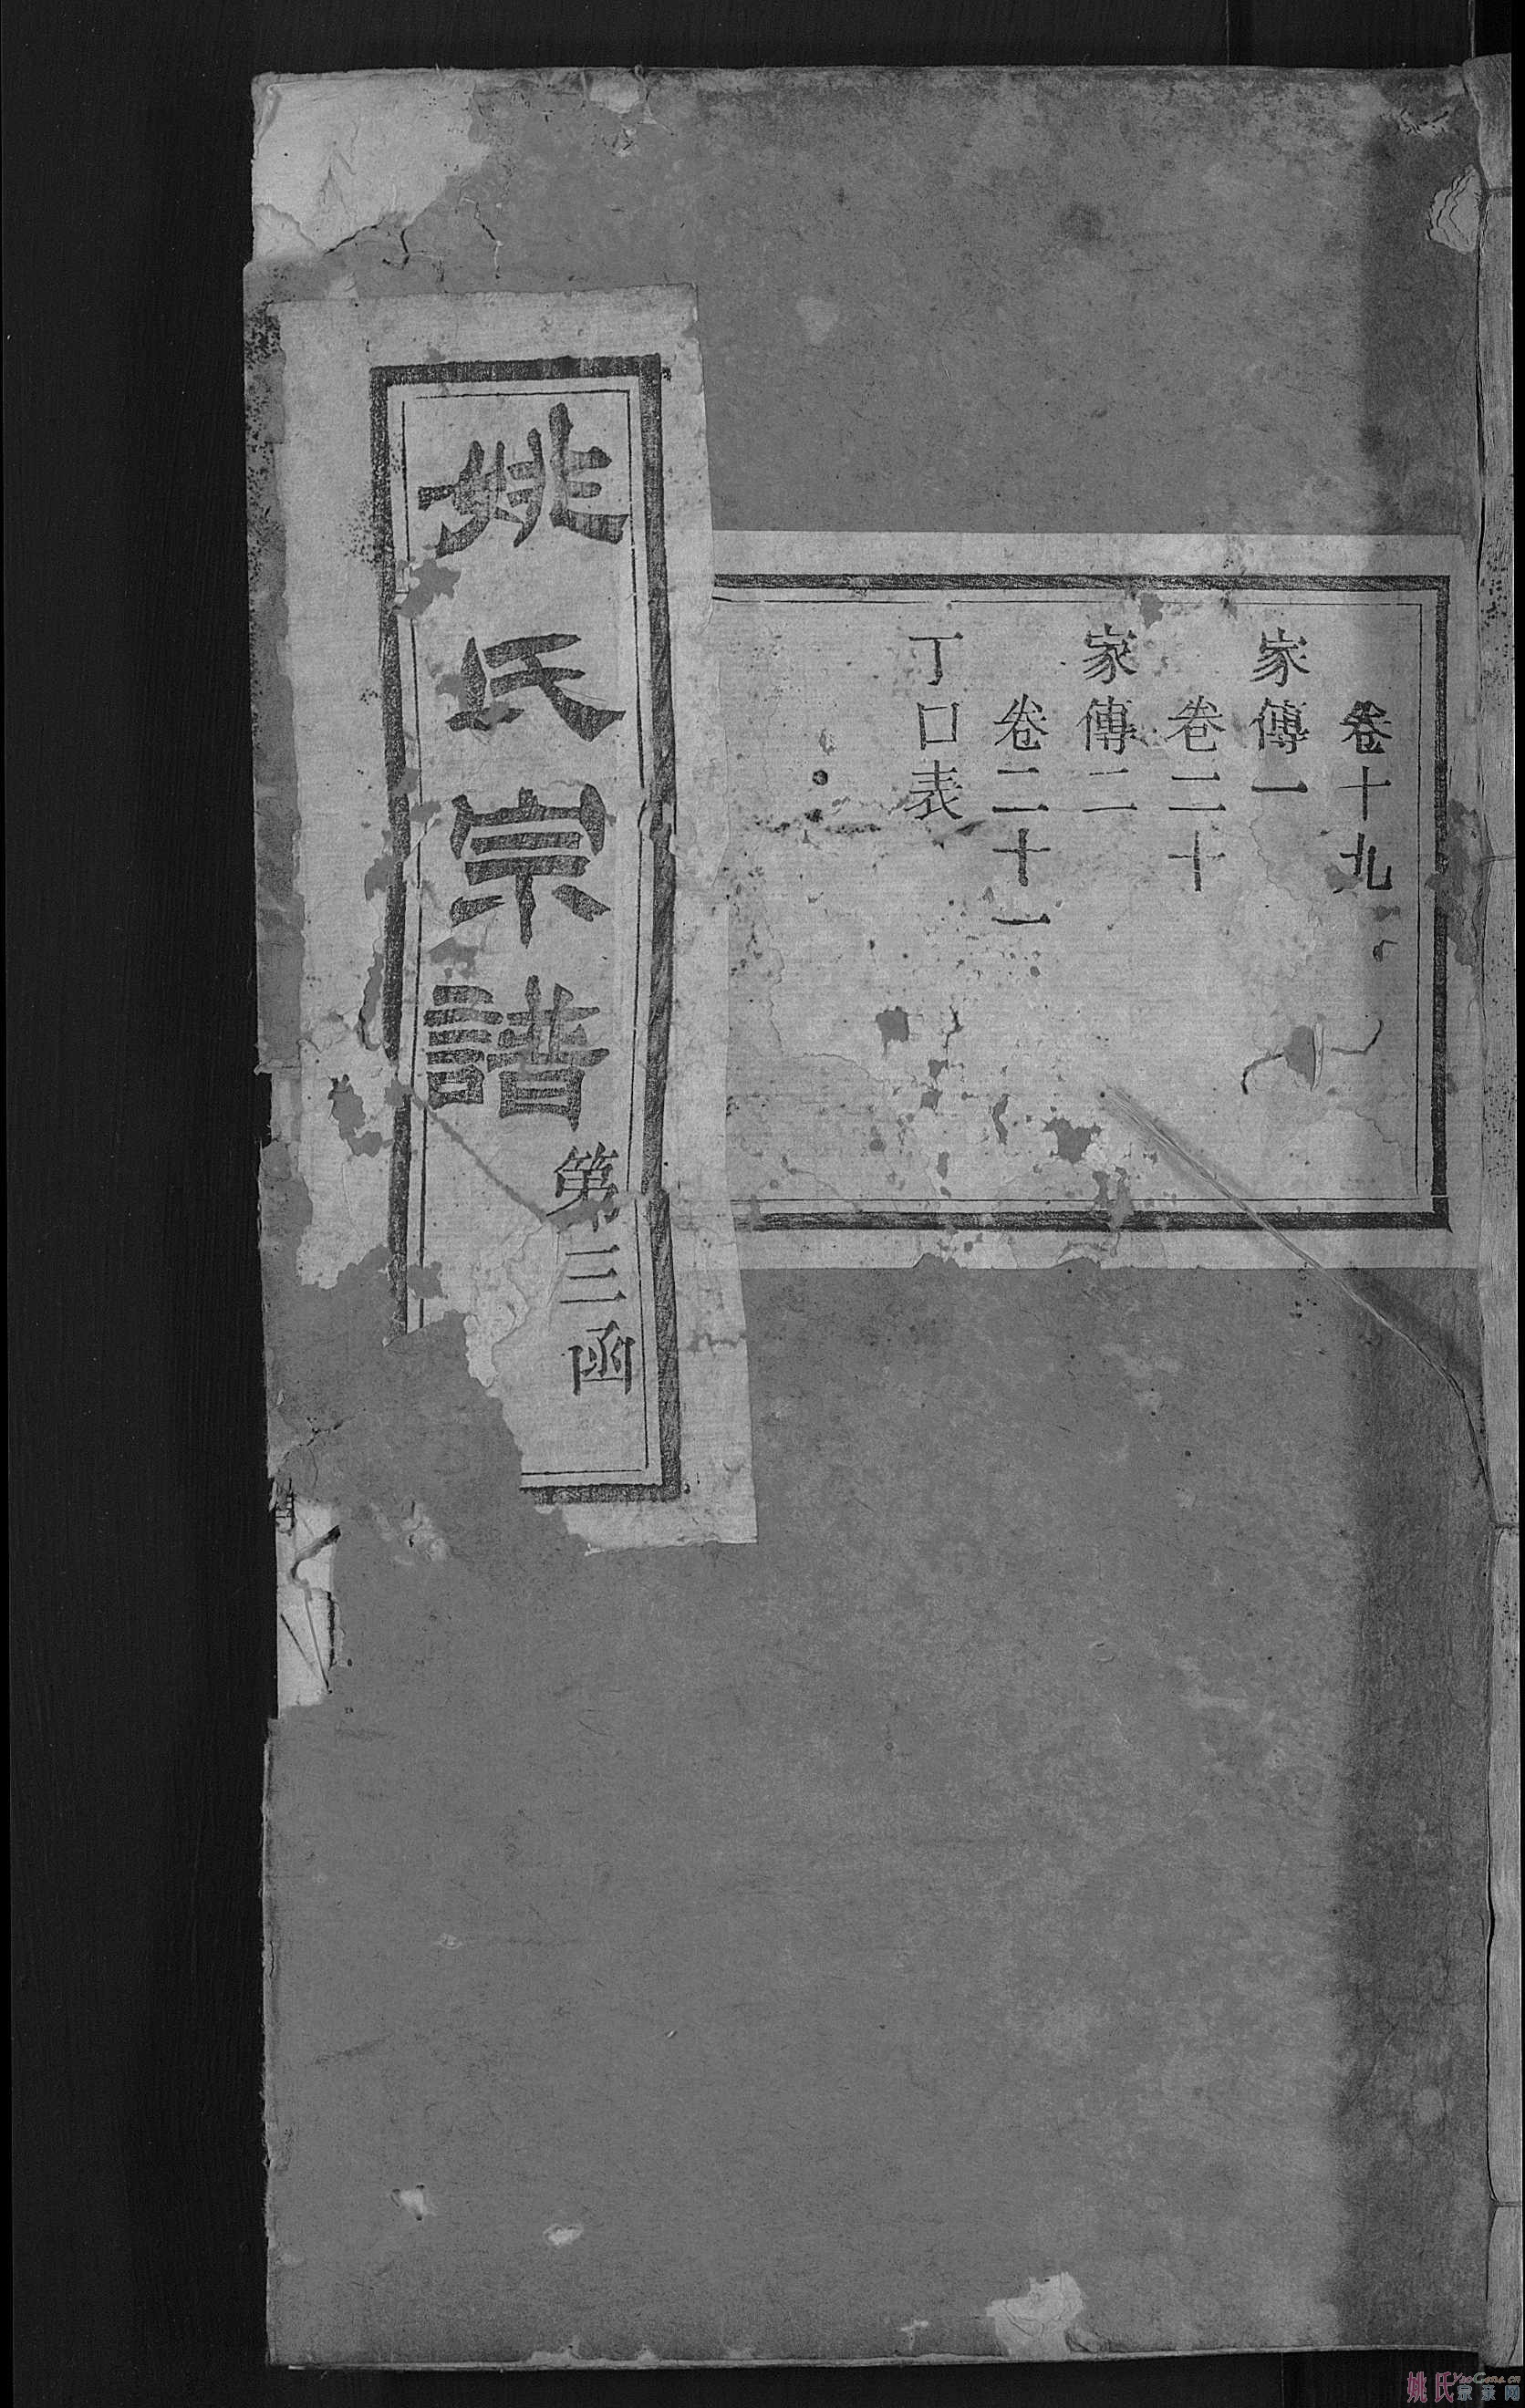 卷十九
家傳一
卷二十
家傳二
卷二十一
丁口表
姚氏宗譜
第三函
姚氏
YaoGens.cn